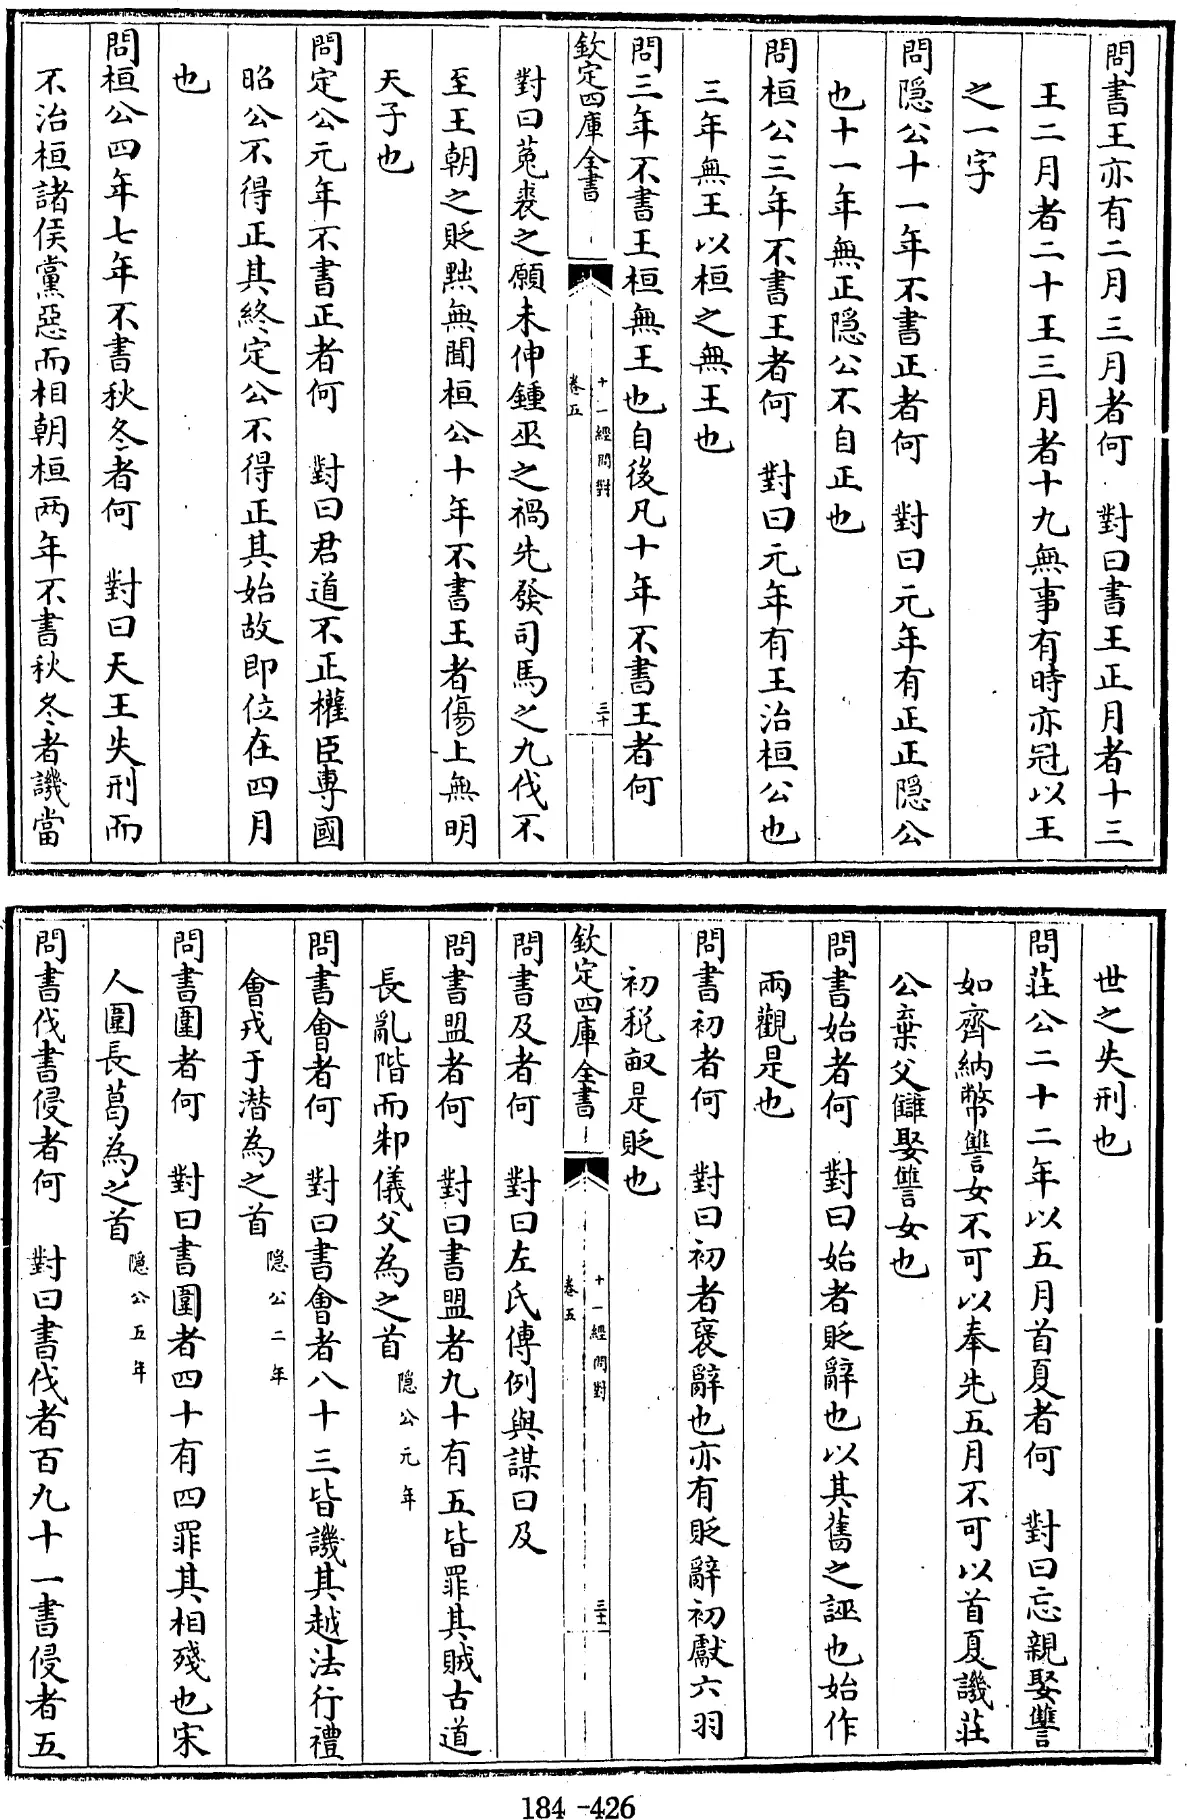 問書王亦有二月三月者何　對曰書王正月者十三
王二月者二十王三月者十九無事有時亦冠以王
之一字
問隱公十一年不書正者何　對曰元年有正正隱公
也十一年無正隱公不自正也
問桓公三年不書王者何　對曰元年有王治桓公也
三年無王以桓之無王也
問三年不書王桓無王也自後凡十年不書王者何
欽定四庫全書　卷五　十一經問對　三十
對曰菟裘之願未伸鍾巫之禍先發司馬之九伐不
至王朝之貶黜無聞桓公十年不書王者傷上無明
天子也
問定公元年不書正者何　對曰君道不正權臣專國
昭公不得正其終定公不得正其始故即位在四月
也
問桓公四年七年不書秋冬者何　對曰天王失刑而
不治桓諸侯黨惡而相朝桓两年不書秋冬者譏當
世之失刑也
問莊公二十二年以五月首夏者何　對曰忘親娶讐
如齊納幣讐女不可以奉先五月不可以首夏譏莊
公棄父讎娶讐女也
問書始者何　對曰始者貶辭也以其舊之誣也始作
兩觀是也
問書初者何　對曰初者褒辭也亦有貶辭初獻六羽
初稅畝是貶也
欽定四庫全書　卷五　十一經問對　三十一
問書及者何　對曰左氏傳例與謀曰及
問書盟者何　對曰書盟者九十有五皆罪其賊古道
長亂階而邾儀父為之首隱公元年
問書會者何　對曰書會者八十三皆譏其越法行禮
會戎于潛為之首隱公二年
問書圍者何　對曰書圍者四十有四罪其相殘也宋
人圍長葛為之首隱公五年
問書伐書侵者何　對曰書伐者百九十一書侵者五
184-426